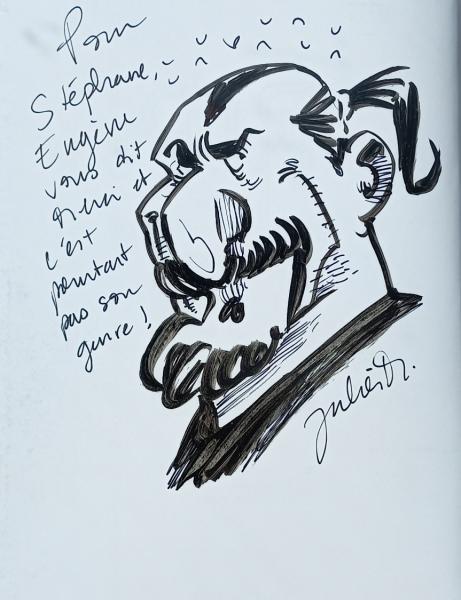 Pour
Stéphane,
Eugène
vous dit
merci et
c'est
pourtant
pas son
genre !